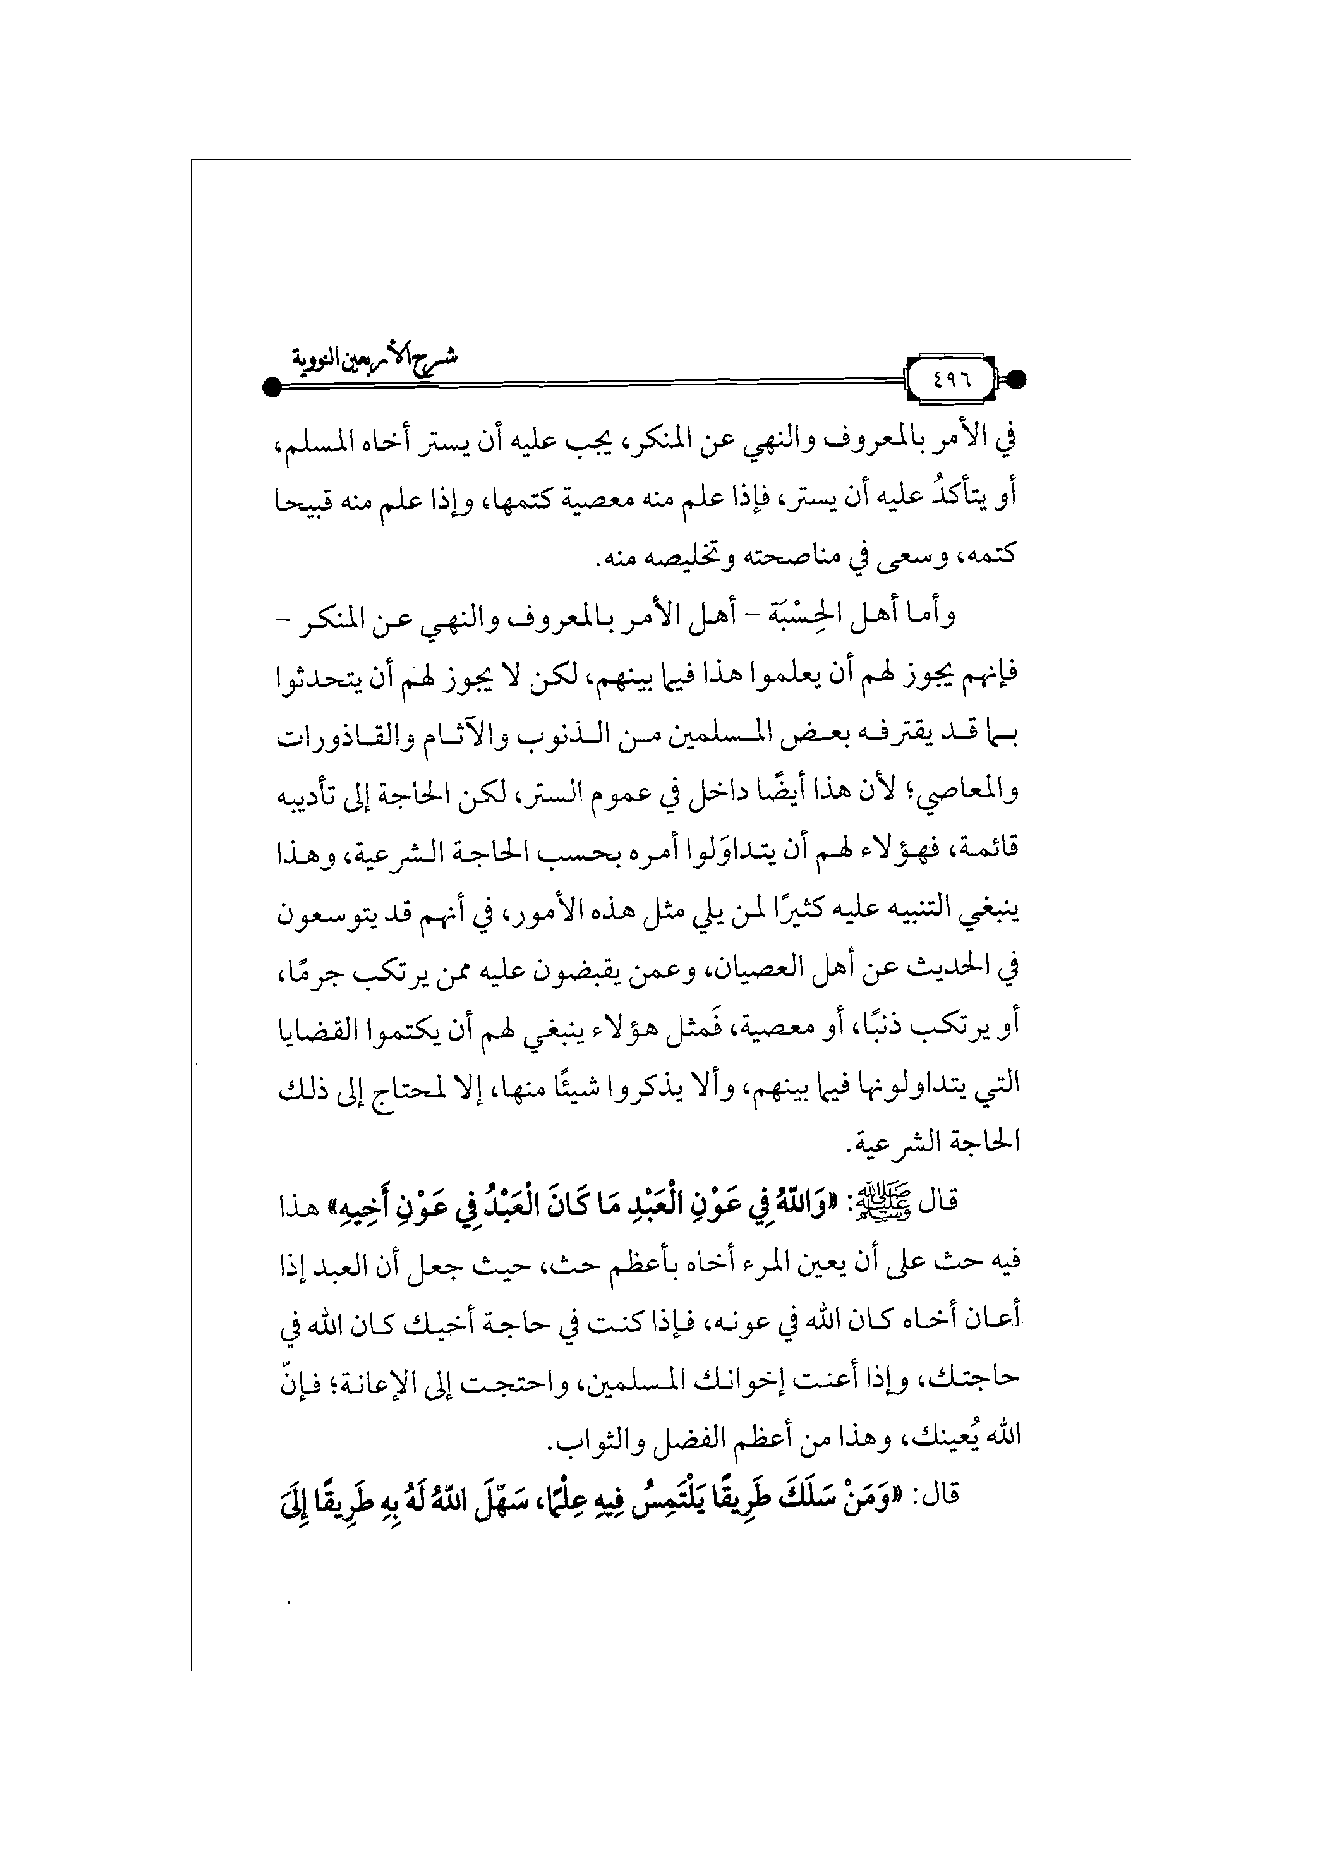 شرح الأربعين النووية
٤٩٦
في الأمر بالمعروف والنهي عن المنكر، يجب عليه أن يستر أخاه المسلم،
أو يتأكدُ عليه أن يستر، فإذا علم منه معصية كتمها، وإذا علم منه قبيحا
كتمه، وسعى في مناصحته وتخليصه منه.
وأما أهل الحِسْبَة – أهل الأمر بالمعروف والنهي عن المنكر –
فإنهم يجوز لهم أن يعلموا هذا فيما بينهم، لكن لا يجوز لهم أن يتحدثوا
بما قد يقترفه بعض المسلمين من الذنوب والآثام والقاذورات
والمعاصي؛ لأن هذا أيضًا داخل في عموم الستر، لكن الحاجة إلى تأديبه
قائمة، فهؤلاء لهم أن يتداوَلوا أمره بحسب الحاجة الشرعية، وهذا
ينبغي التنبيه عليه كثيرًا لمن يلي مثل هذه الأمور، في أنهم قد يتوسعون
في الحديث عن أهل العصيان، وعمن يقبضون عليه ممن يرتكب جرمًا،
أو يرتكب ذنبًا، أو معصية، فَمثل هؤلاء ينبغي لهم أن يكتموا القضايا
التي يتداولونها فيما بينهم، وألا يذكروا شيئًا منها، إلا لمحتاج إلى ذلك
الحاجة الشرعية.
قال ﷺ: «وَاللهُ فِي عَوْنِ الْعَبْدِ مَا كَانَ الْعَبْدُ فِي عَوْنِ أَخِيهِ» هذا
فيه حث على أن يعين المرء أخاه بأعظم حث، حيث جعل أن العبد إذا
أعان أخاه كان الله في عونه، فإذا كنت في حاجة أخيك كان الله في
حاجتك، وإذا أعنت إخوانك المسلمين، واحتجت إلى الإعانة؛ فإنّ
الله يُعينك، وهذا من أعظم الفضل والثواب.
قال: «وَمَنْ سَلَكَ طَرِيقًا يَلْتَمِسُ فِيهِ عِلْمًا، سَهَّلَ اللهُ لَهُ بِهِ طَرِيقًا إِلَى